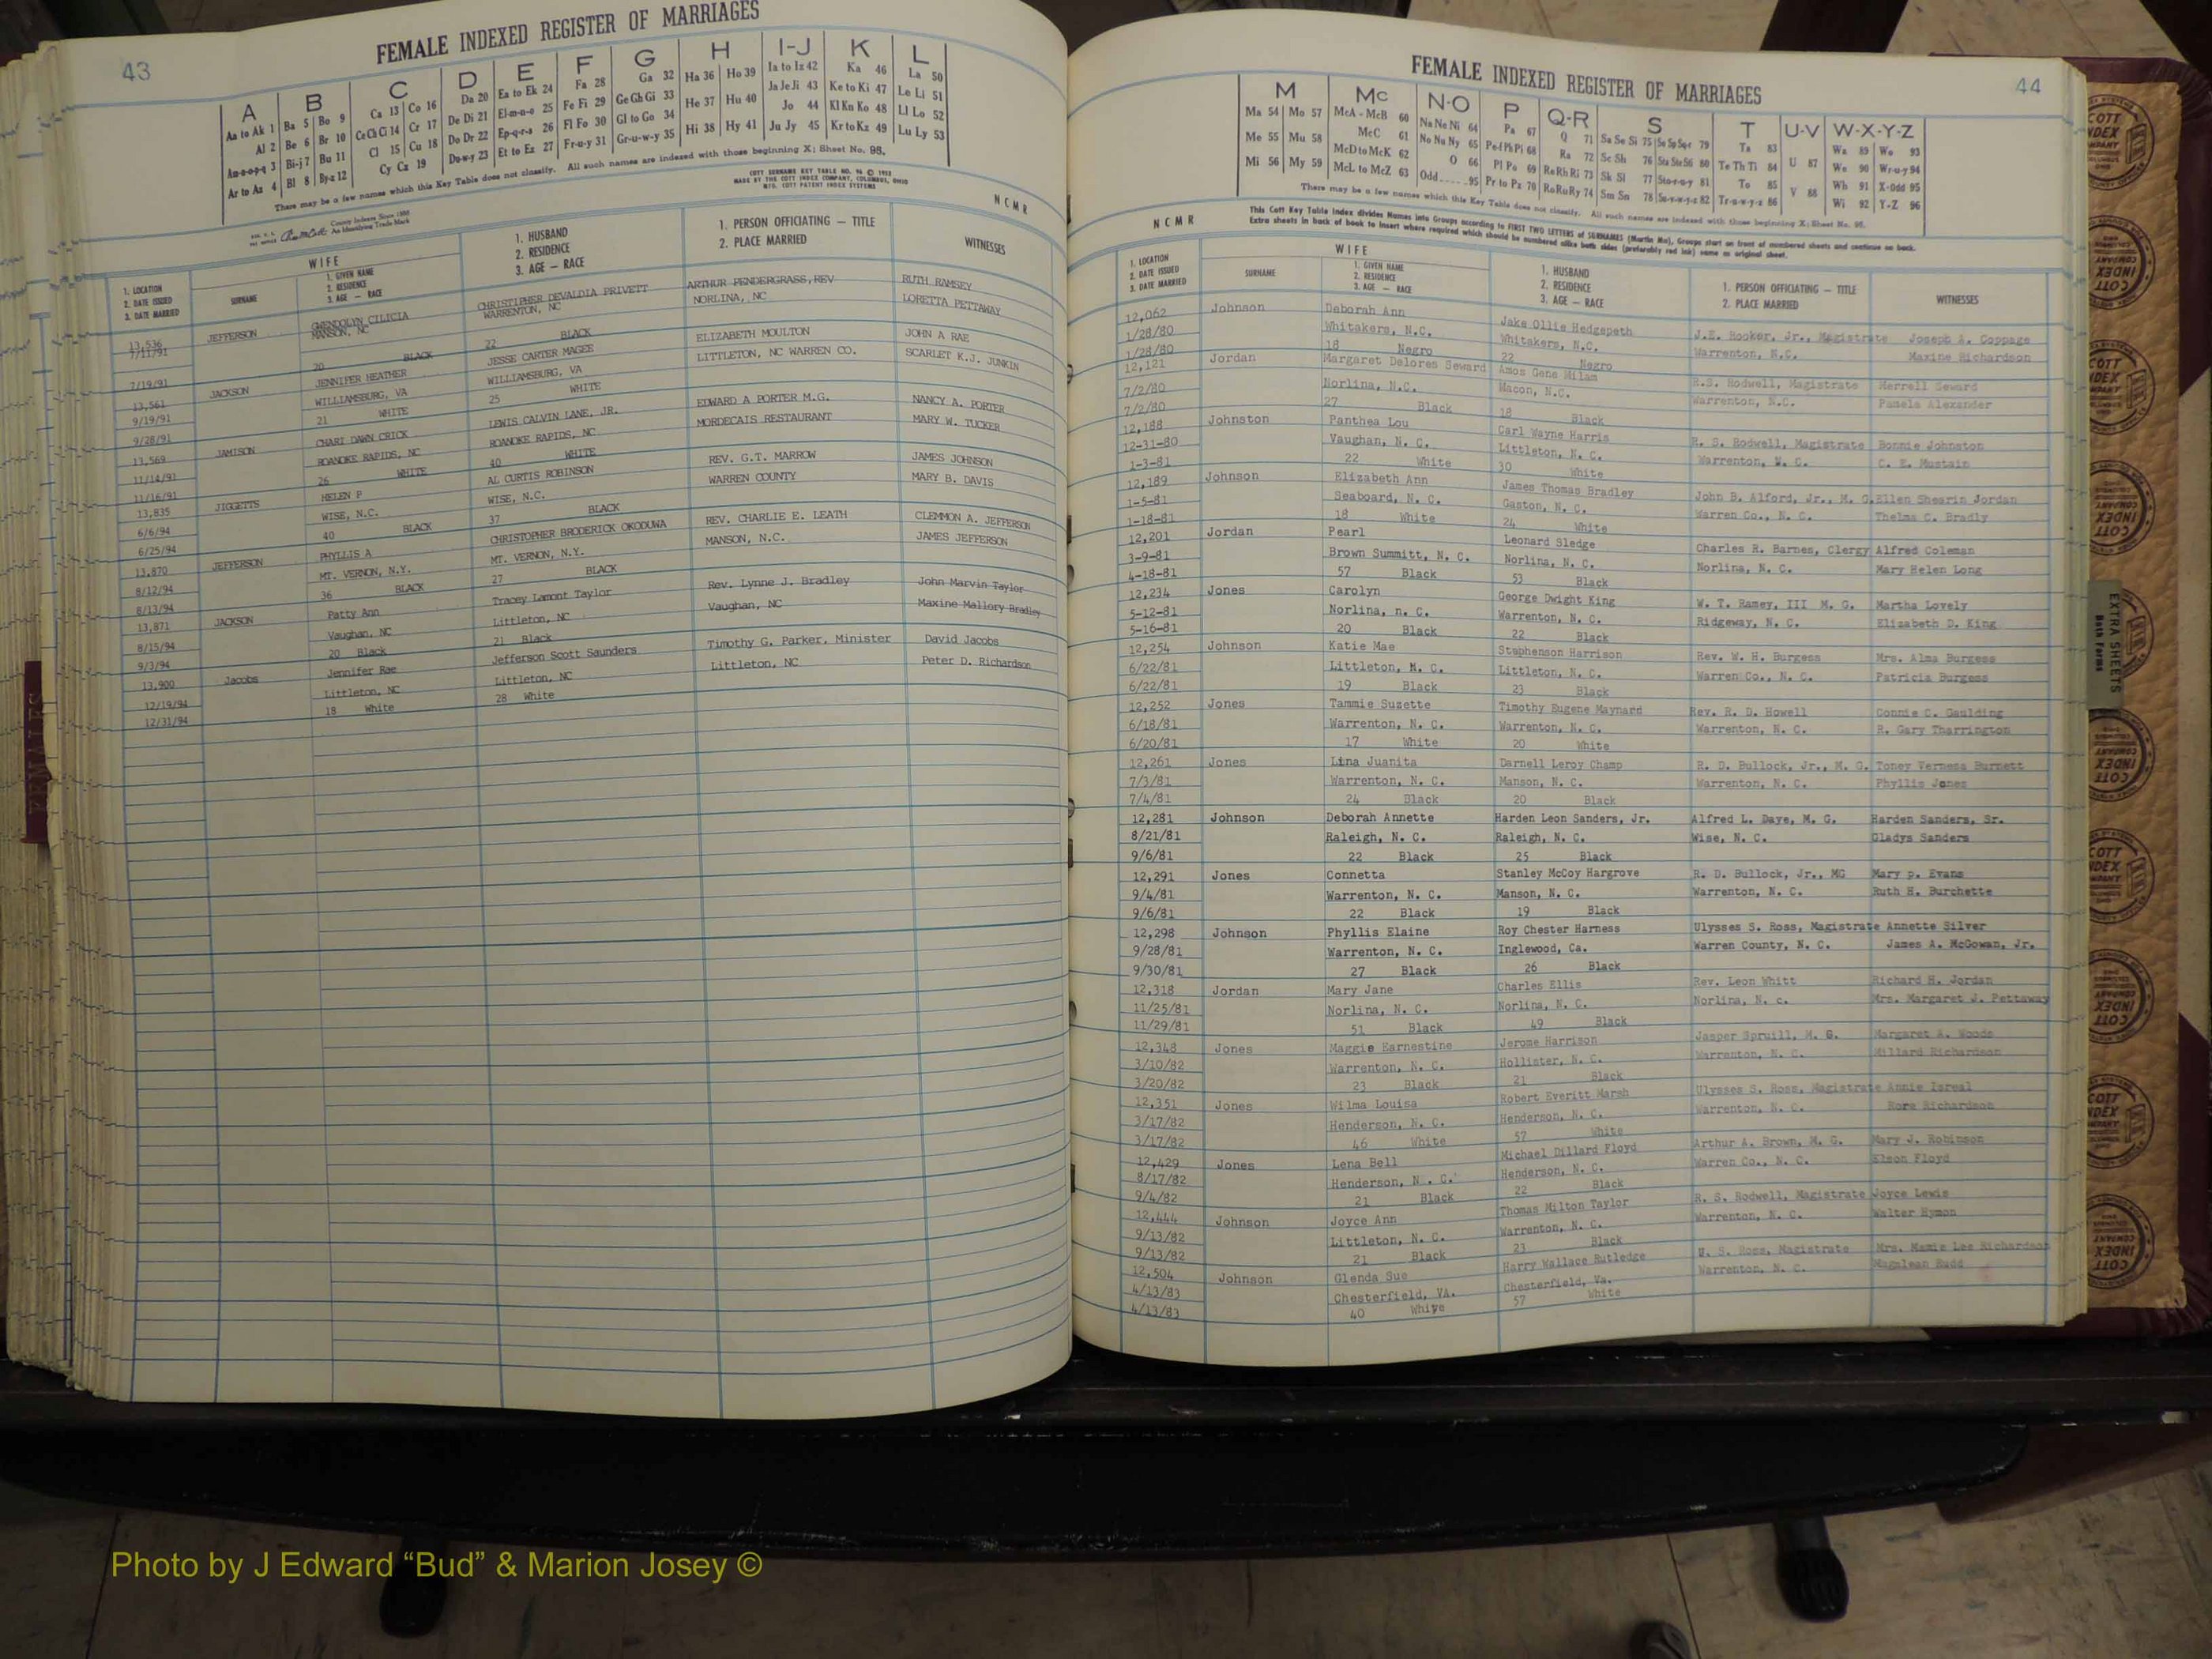 43
FEMALE INDEXED REGISTER OF MARRIAGES
A B C D E F G H I-J K L
Aa to Ak 1 Ba 5 Bo 9 Ca 13 Co 16 Da 20 Ea to Ek 24 Fa 28 Ga 32 Ha 36 Ho 39 Ia to Iz 42 Ka 46 La 50
Al 2 Be 6 Br 10 Ce Ch Ci 14 Cr 17 De Di 21 El-m-n-o 25 Fe Fi 29 Ge Gh Gi 33 He 37 Hu 40 Ja Je Ji 43 Ke to Ki 47 Le Li 51
Am-n-o-p-q 3 Bi-j 7 Bu 11 Cl 15 Cu 18 Do Dr 22 Ep-q-r-s 26 Fl Fo 30 Gl to Go 34 Hi 38 Hy 41 Jo 44 Kl Kn Ko 48 Ll Lo 52
Ar to Az 4 Bl 8 By-z 12 Cy Cz 19 Du-w-y 23 Et to Ez 27 Fr-u-y 31 Gr-u-w-y 35 Ju Jy 45 Kr to Kz 49 Lu Ly 53
There may be a few names which this Key Table does not classify. All such names are indexed with those beginning X; Sheet No. 95.
County Indexes Since 1888
An Identifying Trade Mark
COTT SURNAME KEY TABLE NO. 96 ©
MADE BY THE COTT INDEX COMPANY, COLUMBUS, OHIO
MFG. COTT PATENT INDEX SYSTEMS
N C M R
1. LOCATION
2. DATE ISSUED
3. DATE MARRIED
WIFE
SURNAME
1. GIVEN NAME
2. RESIDENCE
3. AGE — RACE
1. HUSBAND
2. RESIDENCE
3. AGE — RACE
1. PERSON OFFICIATING — TITLE
2. PLACE MARRIED
WITNESSES
13,536 JEFFERSON GWENDOLYN CILICIA CHRISTIPHER DEVALDIA PRIVETT ARTHUR PENDERGRASS, REV RUTH RAMSEY
7/11/91 MANSON, NC WARRENTON, NC NORLINA, NC LORETTA PETTAWAY
7/19/91 20 BLACK 22 BLACK
13,561 JACKSON JENNIFER HEATHER JESSE CARTER MAGEE ELIZABETH MOULTON JOHN A RAE
9/19/91 WILLIAMSBURG, VA WILLIAMSBURG, VA LITTLETON, NC WARREN CO. SCARLET K.J. JUNKIN
9/28/91 21 WHITE 25 WHITE
13,569 JAMISON CHARI DAWN CRICK LEWIS CALVIN LANE, JR. EDWARD A PORTER M.G. NANCY A. PORTER
11/14/91 ROANOKE RAPIDS, NC ROANOKE RAPIDS, NC MORDECAIS RESTAURANT MARY W. TUCKER
11/16/91 26 WHITE 40 WHITE
13,835 JIGGETTS HELEN P AL CURTIS ROBINSON REV. G.T. MARROW JAMES JOHNSON
6/6/94 WISE, N.C. WISE, N.C. WARREN COUNTY MARY B. DAVIS
6/25/94 40 BLACK 37 BLACK
13,870 JEFFERSON PHYLLIS A CHRISTOPHER BRODERICK OKODUWA REV. CHARLIE E. LEATH CLEMMON A. JEFFERSON
8/12/94 MT. VERNON, N.Y. MT. VERNON, N.Y. MANSON, N.C. JAMES JEFFERSON
8/13/94 36 BLACK 27 BLACK
13,871 JACKSON Patty Ann Tracey Lamont Taylor Rev. Lynne J. Bradley John Marvin Taylor
8/15/94 Vaughan, NC Littleton, NC Vaughan, NC Maxine Mallory Bradley
9/3/94 20 Black 21 Black
13,900 Jacobs Jennifer Rae Jefferson Scott Saunders Timothy G. Parker, Minister David Jacobs
12/19/94 Littleton, NC Littleton, NC Littleton, NC Peter D. Richardson
12/31/94 18 White 28 White
44
FEMALE INDEXED REGISTER OF MARRIAGES
M Mc N-O P Q-R S T U-V W-X-Y-Z
Ma 54 Mo 57 McA - McB 60 Na Ne Ni 64 Pa 67 Q 71 Sa Se Si 75 So Sp Sq-r 79 Ta 83 U 87 Wa 89 Wo 93
Me 55 Mu 58 McC 61 No Nu Ny 65 Pe-f Ph Pi 68 Ra 72 Sc Sh 76 Sta Ste Sti 80 Te Th Ti 84 We 90 Wr-u-y 94
McD to McK 62 O 66 Pl Po 69 Re Rh Ri 73 Sk Sl 77 Sto-r-u-y 81 To 85 V 88 Wh 91 X-Odd 95
Mi 56 My 59 McL to McZ 63 Odd 95 Pr to Pz 70 Ro Ru Ry 74 Sm Sn 78 Su-v-w-y-z 82 Tr-u-w-y-z 86 Wi 92 Y-Z 96
There may be a few names which this Key Table does not classify. All such names are indexed with those beginning X; Sheet No. 95.
N C M R
This Cott Key Table Index divides Names into Groups according to FIRST TWO LETTERS of SURNAMES (Martin Ma), Groups start on front of numbered sheets and continue on back.
Extra sheets in back of book to insert where required which should be numbered alike both sides (preferably red ink) same as original sheet.
1. LOCATION
2. DATE ISSUED
3. DATE MARRIED
WIFE
SURNAME
1. GIVEN NAME
2. RESIDENCE
3. AGE — RACE
1. HUSBAND
2. RESIDENCE
3. AGE — RACE
1. PERSON OFFICIATING — TITLE
2. PLACE MARRIED
WITNESSES
12,062 Johnson Deborah Ann Jake Ollie Hedgepeth J.E. Rooker, Jr., Magistrate Joseph A. Coppage
1/28/80 Whitakers, N.C. Whitakers, N.C. Warrenton, N.C. Maxine Richardson
1/28/80 18 Negro 22 Negro
12,121 Jordan Margaret Delores Seward Amos Gene Milam R.S. Rodwell, Magistrate Merrell Seward
7/2/80 Norlina, N.C. Macon, N.C. Warrenton, N.C. Pamela Alexander
7/2/80 27 Black 18 Black
12,188 Johnston Panthea Lou Carl Wayne Harris R. S. Rodwell, Magistrate Bonnie Johnston
12-31-80 Vaughan, N. C. Littleton, N. C. Warrenton, N. C. C. E. Mustain
1-3-81 22 White 30 White
12,189 Johnson Elizabeth Ann James Thomas Bradley John B. Alford, Jr., M. G. Ellen Shearin Jordan
1-5-81 Seaboard, N. C. Gaston, N. C. Warren Co., N. C. Thelma C. Bradly
1-18-81 18 White 24 White
12,201 Jordan Pearl Leonard Sledge Charles R. Barnes, Clergy Alfred Coleman
3-9-81 Brown Summitt, N. C. Norlina, N. C. Norlina, N. C. Mary Helen Long
4-18-81 57 Black 53 Black
12,234 Jones Carolyn George Dwight King W. T. Ramey, III M. G. Martha Lovely
5-12-81 Norlina, n. C. Warrenton, N. C. Ridgeway, N. C. Elizabeth D. King
5-16-81 20 Black 22 Black
12,254 Johnson Katie Mae Stephenson Harrison Rev. W. H. Burgess Mrs. Alma Burgess
6/22/81 Littleton, N. C. Littleton, N. C. Warren Co., N. C. Patricia Burgess
6/22/81 19 Black 23 Black
12,252 Jones Tammie Suzette Timothy Eugene Maynard Rev. R. D. Howell Connie C. Gaulding
6/18/81 Warrenton, N. C. Warrenton, N. C. Warrenton, N. C. R. Gary Tharrington
6/20/81 17 White 20 White
12,261 Jones Lina Juanita Darnell Leroy Champ R. D. Bullock, Jr., M. G. Toney Vernesa Burnett
7/3/81 Warrenton, N. C. Manson, N. C. Warrenton, N. C. Phyllis Jones
7/4/81 24 Black 20 Black
12,281 Johnson Deborah Annette Harden Leon Sanders, Jr. Alfred L. Daye, M. G. Harden Sanders, Sr.
8/21/81 Raleigh, N. C. Raleigh, N. C. Wise, N. C. Gladys Sanders
9/6/81 22 Black 25 Black
12,291 Jones Connetta Stanley McCoy Hargrove R. D. Bullock, Jr., MG Mary p. Evans
9/4/81 Warrenton, N. C. Manson, N. C. Warrenton, N. C. Ruth H. Burchette
9/6/81 22 Black 19 Black
12,298 Johnson Phyllis Elaine Roy Chester Harness Ulysses S. Ross, Magistrate Annette Silver
9/28/81 Warrenton, N. C. Inglewood, Ca. Warren County, N. C. James A. McGowan, Jr.
9/30/81 27 Black 26 Black
12,318 Jordan Mary Jane Charles Ellis Rev. Leon Whitt Richard H. Jordan
11/25/81 Norlina, N. C. Norlina, N. C. Norlina, N. c. Mrs. Margaret J. Pettaway
11/29/81 51 Black 49 Black
12,348 Jones Maggie Earnestine Jerome Harrison Jasper Spruill, M. G. Margaret A. Woods
3/10/82 Warrenton, N. C. Hollister, N. C. Warrenton, N. C. Millard Richardson
3/20/82 23 Black 21 Black
12,351 Jones Wilma Louisa Robert Everitt Marsh Ulysses S. Ross, Magistrate Annie Isreal
3/17/82 Henderson, N. C. Henderson, N. C. Warrenton, N. C. Rora Richardson
3/17/82 46 White 57 White
12,429 Jones Lena Bell Michael Dillard Floyd Arthur A. Brown, M. G. Mary J. Robinson
8/17/82 Henderson, N. C. Henderson, N. C. Warren Co., N. C. Elson Floyd
9/4/82 21 Black 22 Black
12,444 Johnson Joyce Ann Thomas Milton Taylor R. S. Rodwell, Magistrate Joyce Lewis
9/13/82 Littleton, N. C. Warrenton, N. C. Warrenton, N. C. Walter Hymon
9/13/82 21 Black 23 Black
12,504 Johnson Glenda Sue Harry Wallace Rutledge U. S. Ross, Magistrate Mrs. Mamie Lee Richardson
4/13/83 Chesterfield, VA. Chesterfield, Va. Warrenton, N. C. Magalean Rudd
4/13/83 40 Whipe 57 White
EXTRA SHEETS
Both Forms
FEMALES
Photo by J Edward “Bud” & Marion Josey ©